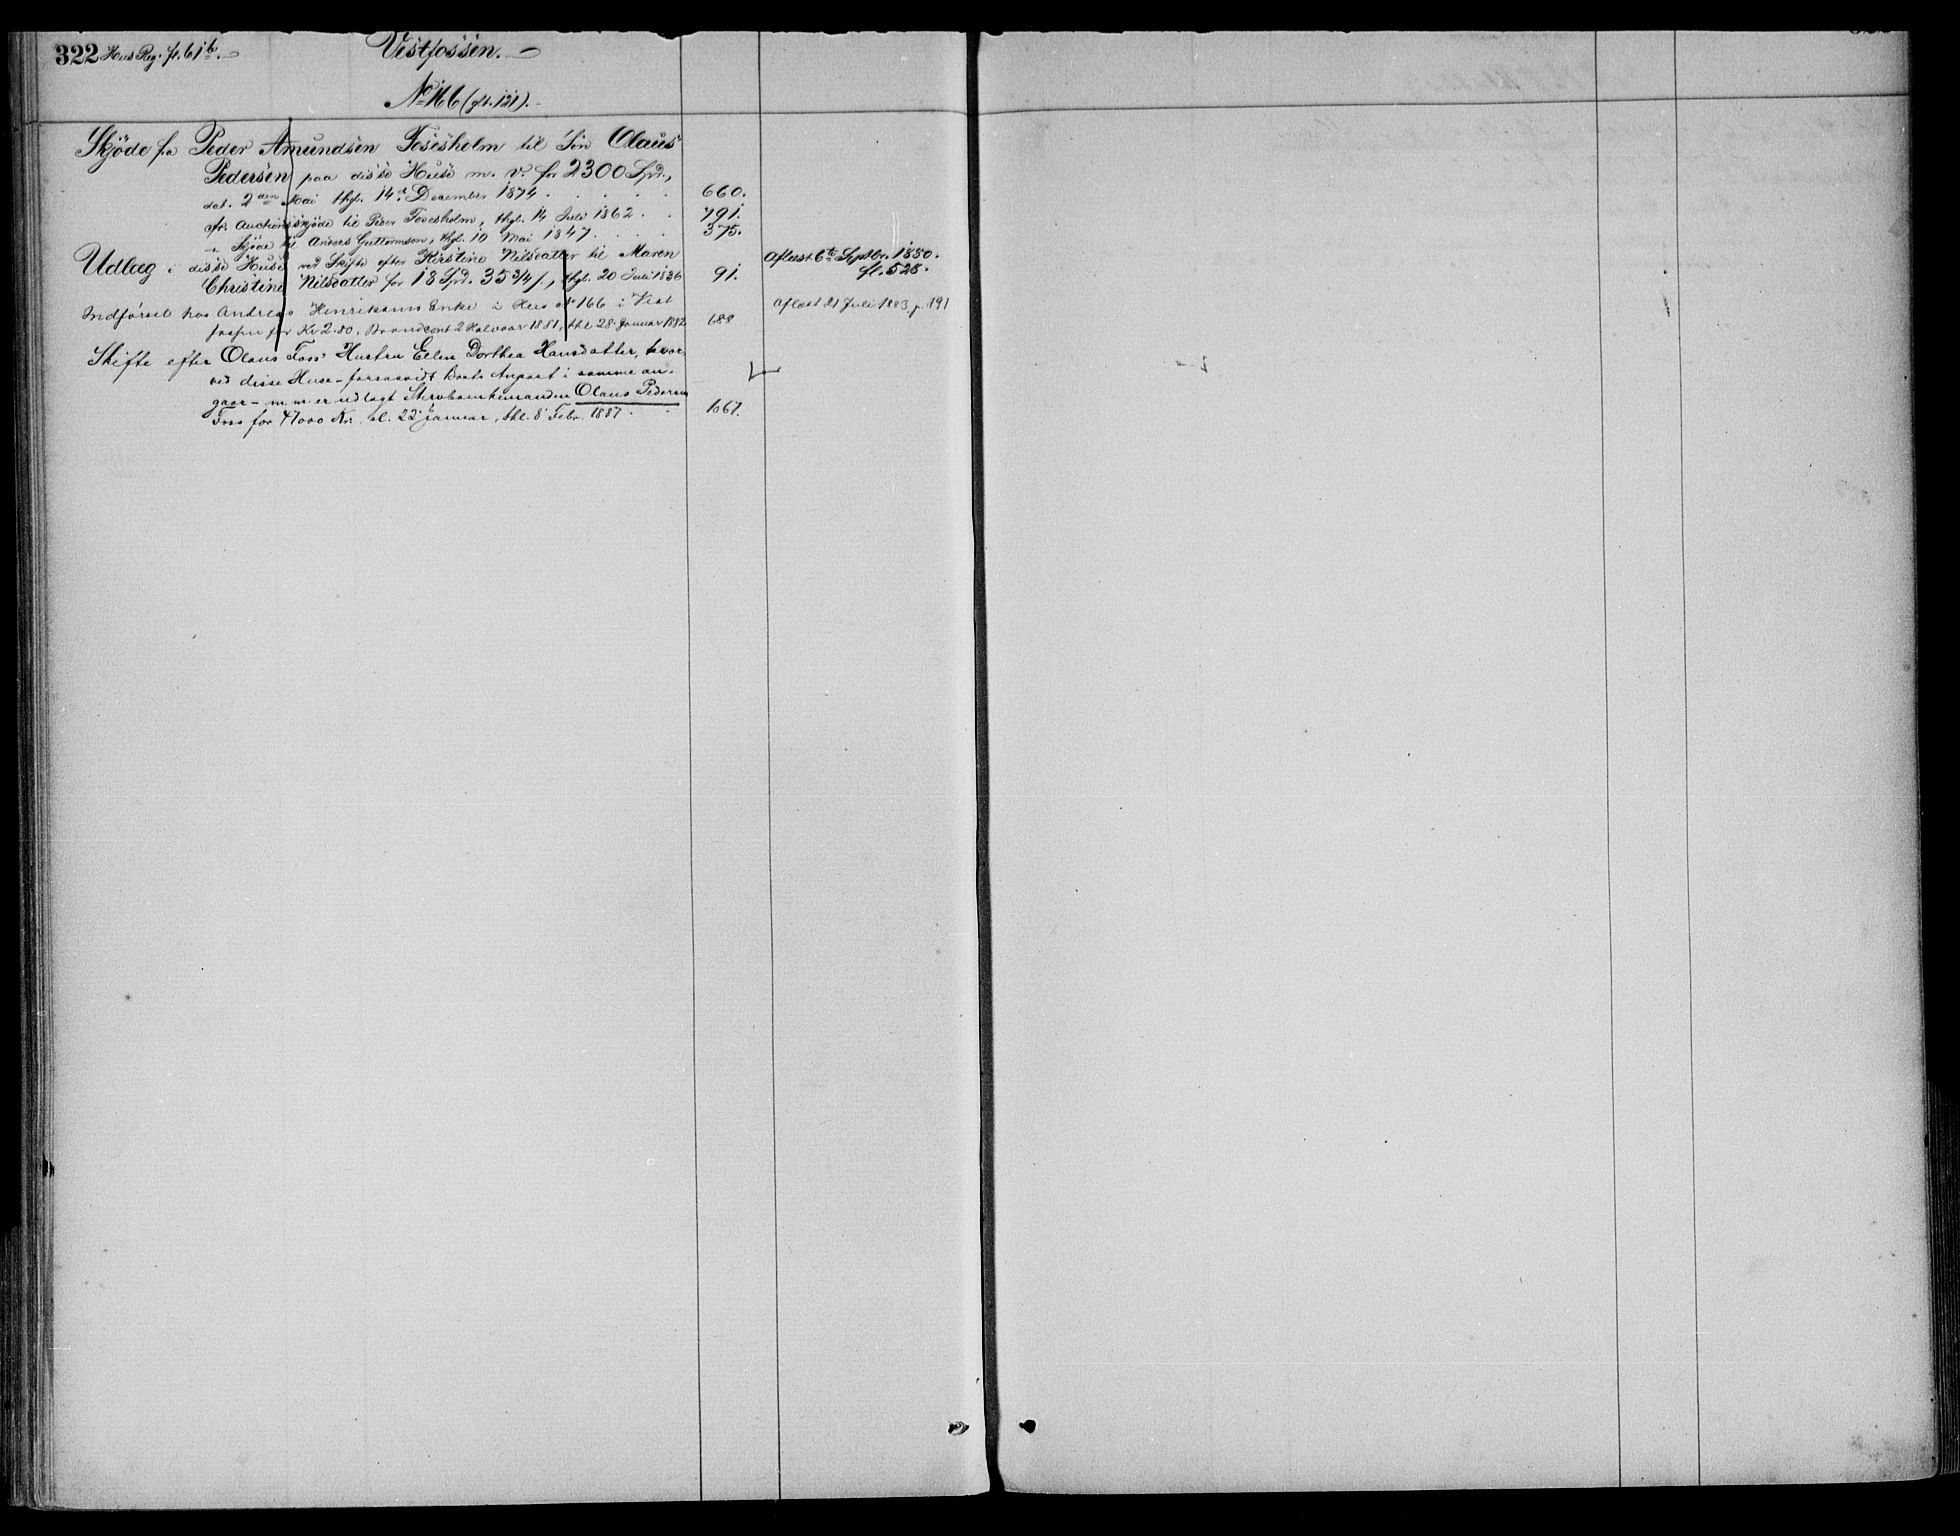 322 Hus Reg. fl. 61b.
Vestfossen.
No 166 (gl. 121).
Skjøde fra Peder Amundsen Fosesholm til Søn Olaus
Pedersen paa disse Huse m. v. for 2300 Spd.,
dat. 2den Mai thgl. 14d December 1874 . . . . 660.
cfr. Auctionsskjøde til Peder Fosesholm, thgl. 14 Juli 1862 . . 791.
" Skjøde til Anders Guttormsen, thgl. 10 Mai 1847. . . . 375.
Udlæg i disse Huse ved Skifte efter Kirstine Nilsdatter til Maren
Christine Nilsdatter for 18 Spd. 35 3/4 s., thgl. 20 Juli 1836 91.
Aflæst 6te Septbr. 1880.
fl. 528.
Indførsel hos Andreas Henriksens Enke i Hus No 166 i Vest
fossen for Kr 2.80, Brandcont 2 Halvaar 1881, thl 28 Januar 1882 688
Aflæst 21 Juli 1883, p. 191
Skifte efter Olaus Foss' Hustru Ellen Dorthea Hansdatter, hvor
ved disse Huse - forsaavidt Boets Anpart i samme an-
gaar - m. m. er udlagt Olaus Pedersen
Foss for 47000 Kr. sl. 22 januar, thl. 8 Febr. 1887. 1067.